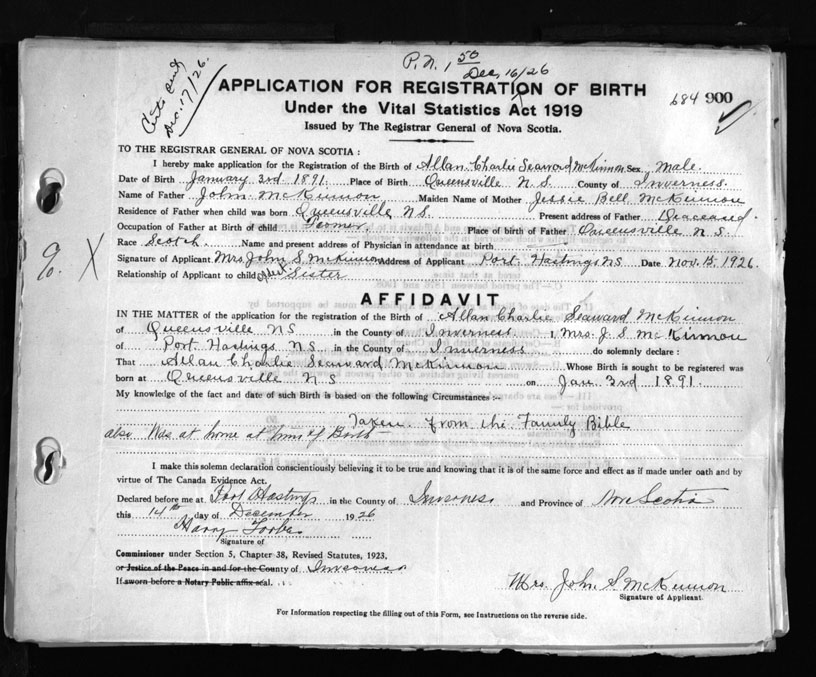 P.N. 1 50
Dec. 16/26
Certs sent
Dec. 17/26.
APPLICATION FOR REGISTRATION OF BIRTH
684 900
Under the Vital Statistics Act 1919
Issued by The Registrar General of Nova Scotia.
TO THE REGISTRAR GENERAL OF NOVA SCOTIA :
I hereby make application for the Registration of the Birth of Allan Charlie Seaward McKinnon Sex Male.
Date of Birth January 3rd 1891. Place of Birth Queensville N.S. County of Inverness.
Name of Father John McKinnon Maiden Name of Mother Jessie Bell McKinnon
Residence of Father when child was born Queensville NS. Present address of Father Deaceased.
Occupation of Father at Birth of child Farmer. Place of birth of Father Queensville N.S.
Race Scotch. Name and present address of Physician in attendance at birth
Signature of Applicant Mrs John S. McKinnon Address of Applicant Port Hastings NS Date Nov. 15, 1926.
Relationship of Applicant to child Sister
AFFIDAVIT
IN THE MATTER of the application for the registration of the Birth of Allan Charlie Seaward McKinnon
of Queensville NS in the County of Inverness I, Mrs. J. S. McKinnon
of Port Hastings NS in the County of Inverness do solemnly declare :
That Allan Charlie Seaward McKinnon Whose Birth is sought to be registered was
born at Queensville N S on Jan. 3rd 1891.
My knowledge of the fact and date of such Birth is based on the following Circumstances :-
Taken from the Family Bible
also Was at home at time of Birth
I make this solemn declaration conscientiously believing it to be true and knowing that it is of the same force and effect as if made under oath and by
virtue of The Canada Evidence Act.
Declared before me at Port Hastings in the County of Inverness and Province of Nova Scotia
this 14th day of December 1926
Harry Forbes
Signature of
Commissioner under Section 5, Chapter 38, Revised Statutes, 1923,
or Justice of the Peace in and for the County of Inverness
If sworn before a Notary Public affix seal.
Mrs. John S McKinnon
Signature of Applicant.
For Information respecting the filling out of this Form, see Instructions on the reverse side.